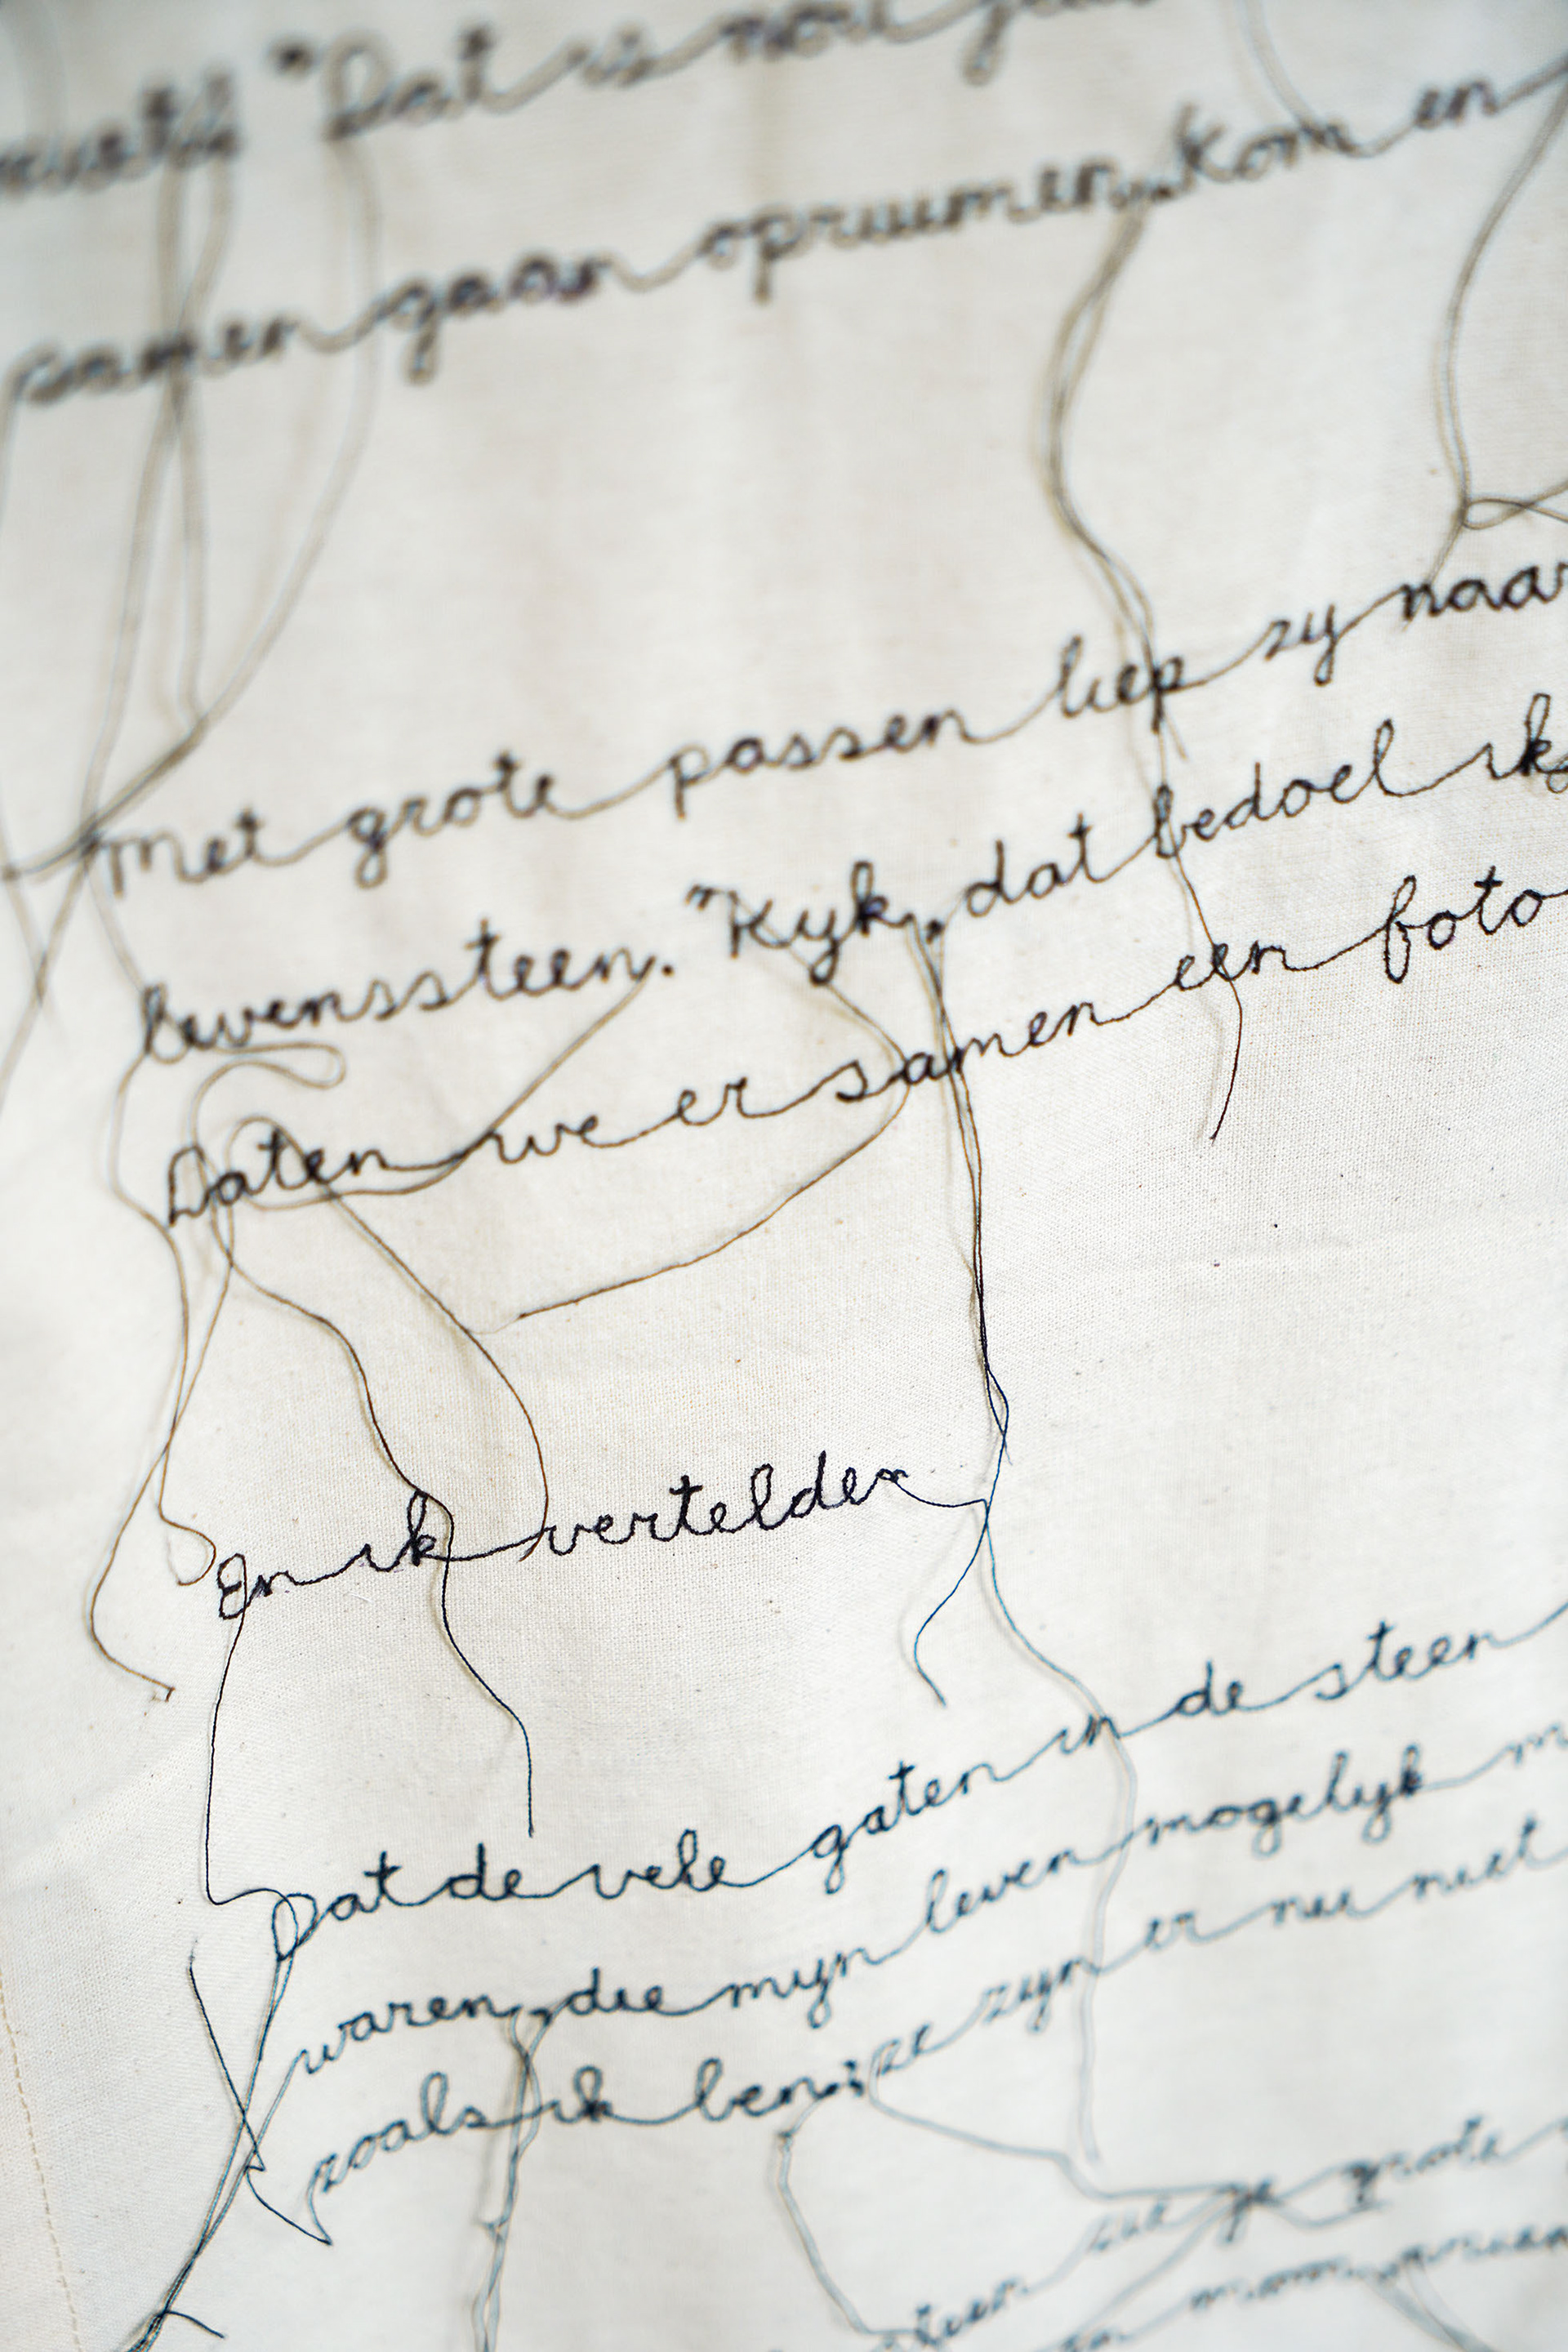 "Dat is
samen gaan opruimen, Kom en
Met grote passen liep zij naar
levenssteen. "Kijk, dat bedoel ik
Laten we er samen een foto
En ik vertelden
Dat de vele gaten in de steen
waren, die mijn leven mogelijk m
zoals ik ben; ze zijn er nie niet
steen zie je grote